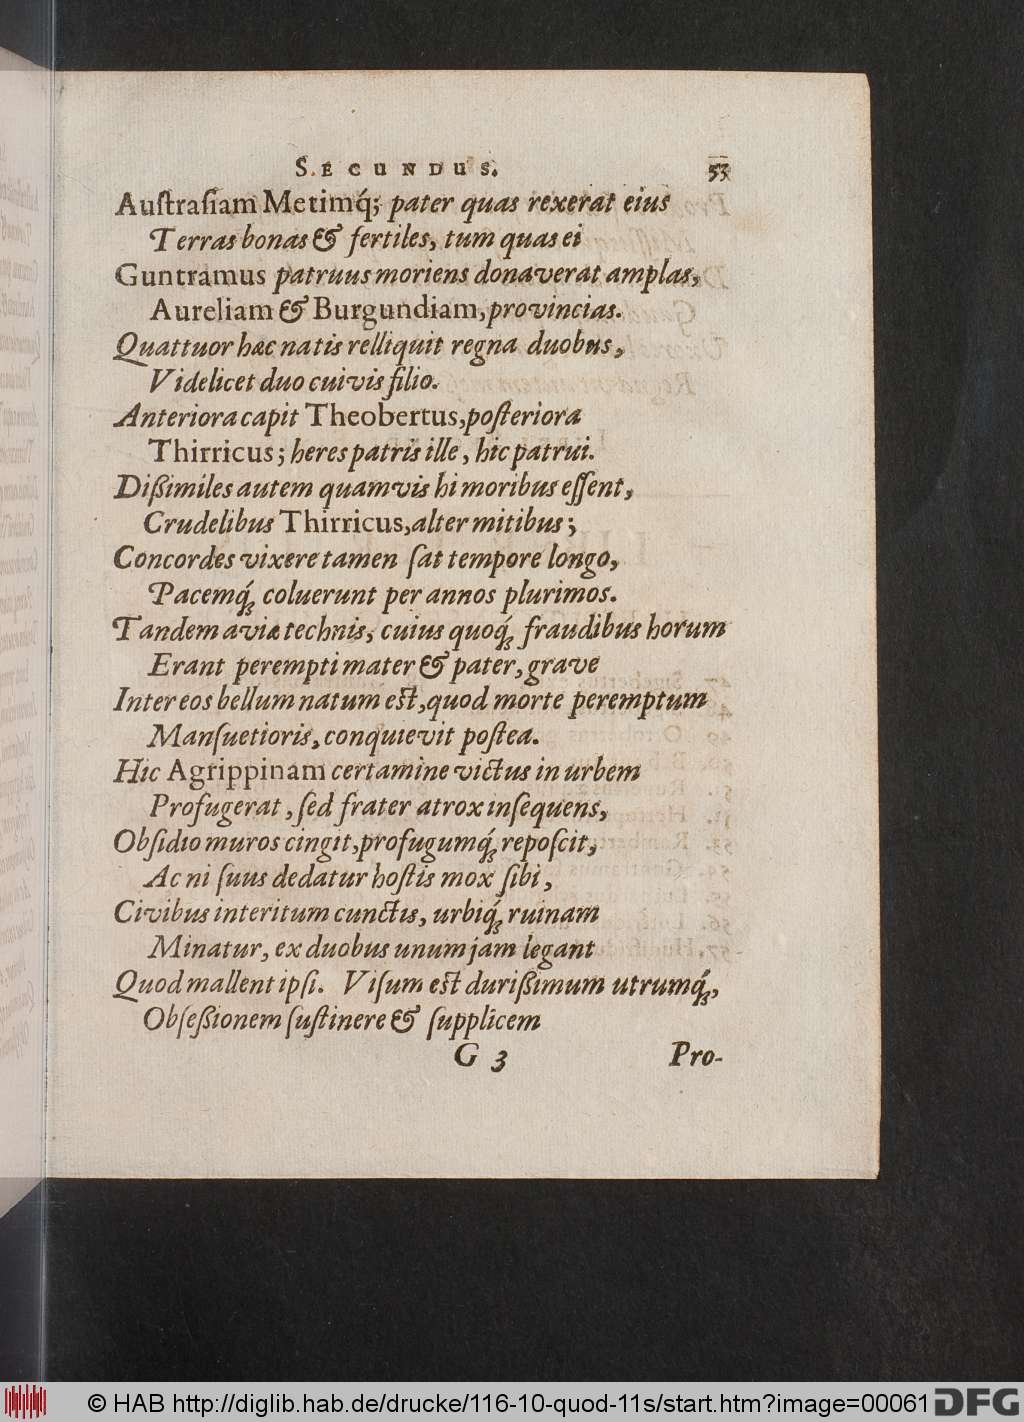 SECUNDUS. 53
Auſtraſiam Metimq́; pater quas rexerat eius
Terras bonas & fertiles, tum quas ei
Guntramus patruus moriens donaverat amplas,
Aureliam & Burgundiam, provincias.
Quattuor hæc natis relliquit regna duobus,
Videlicet duo cuivis filio.
Anteriora capit Theobertus, poſteriora
Thirricus; heres patris ille, hic patrui.
Dißimiles autem quamvis hi moribus eſſent,
Crudelibus Thirricus, alter mitibus;
Concordes vixere tamen ſat tempore longo,
Pacemq́; coluerunt per annos plurimos.
Tandem aviæ technis, cuius quoq́; fraudibus horum
Erant perempti mater & pater, grave
Inter eos bellum natum eſt, quod morte peremptum
Manſuetioris, conquievit poſtea.
Hic Agrippinam certamine victus in urbem
Profugerat, ſed frater atrox inſequens,
Obſidio muros cingit, profugumq́; repoſcit,
Ac ni ſuus dedatur hoſtis mox ſibi,
Civibus interitum cunctis, urbiq́; ruinam
Minatur, ex duobus unum jam legant
Quod mallent ipſi. Viſum eſt durißimum utrumq́;,
Obſeßionem ſuſtinere & ſupplicem
G 3 Pro-
© HAB http://diglib.hab.de/drucke/116-10-quod-11s/start.htm?image=00061 DFG